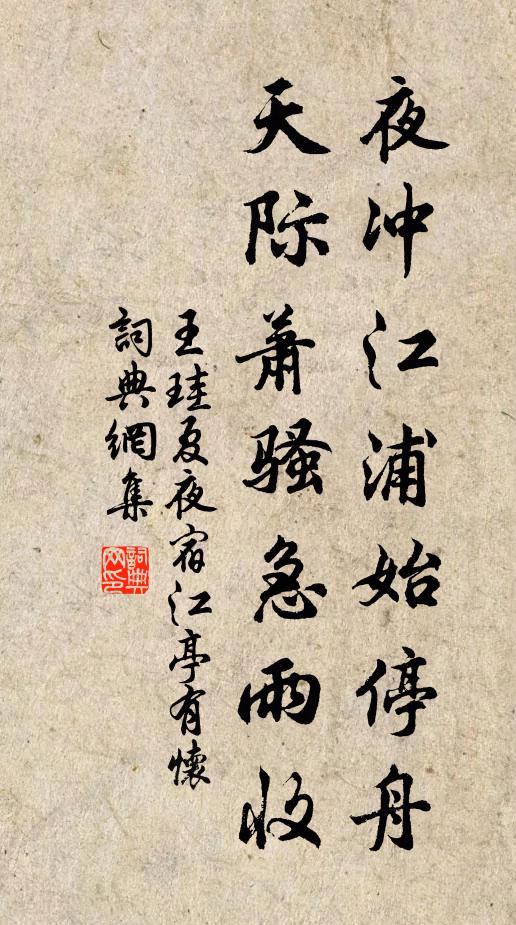 夜冲江浦始停舟
天际萧骚急雨收
王珪夏夜宿江亭有懷
詞典網集
詞典网印